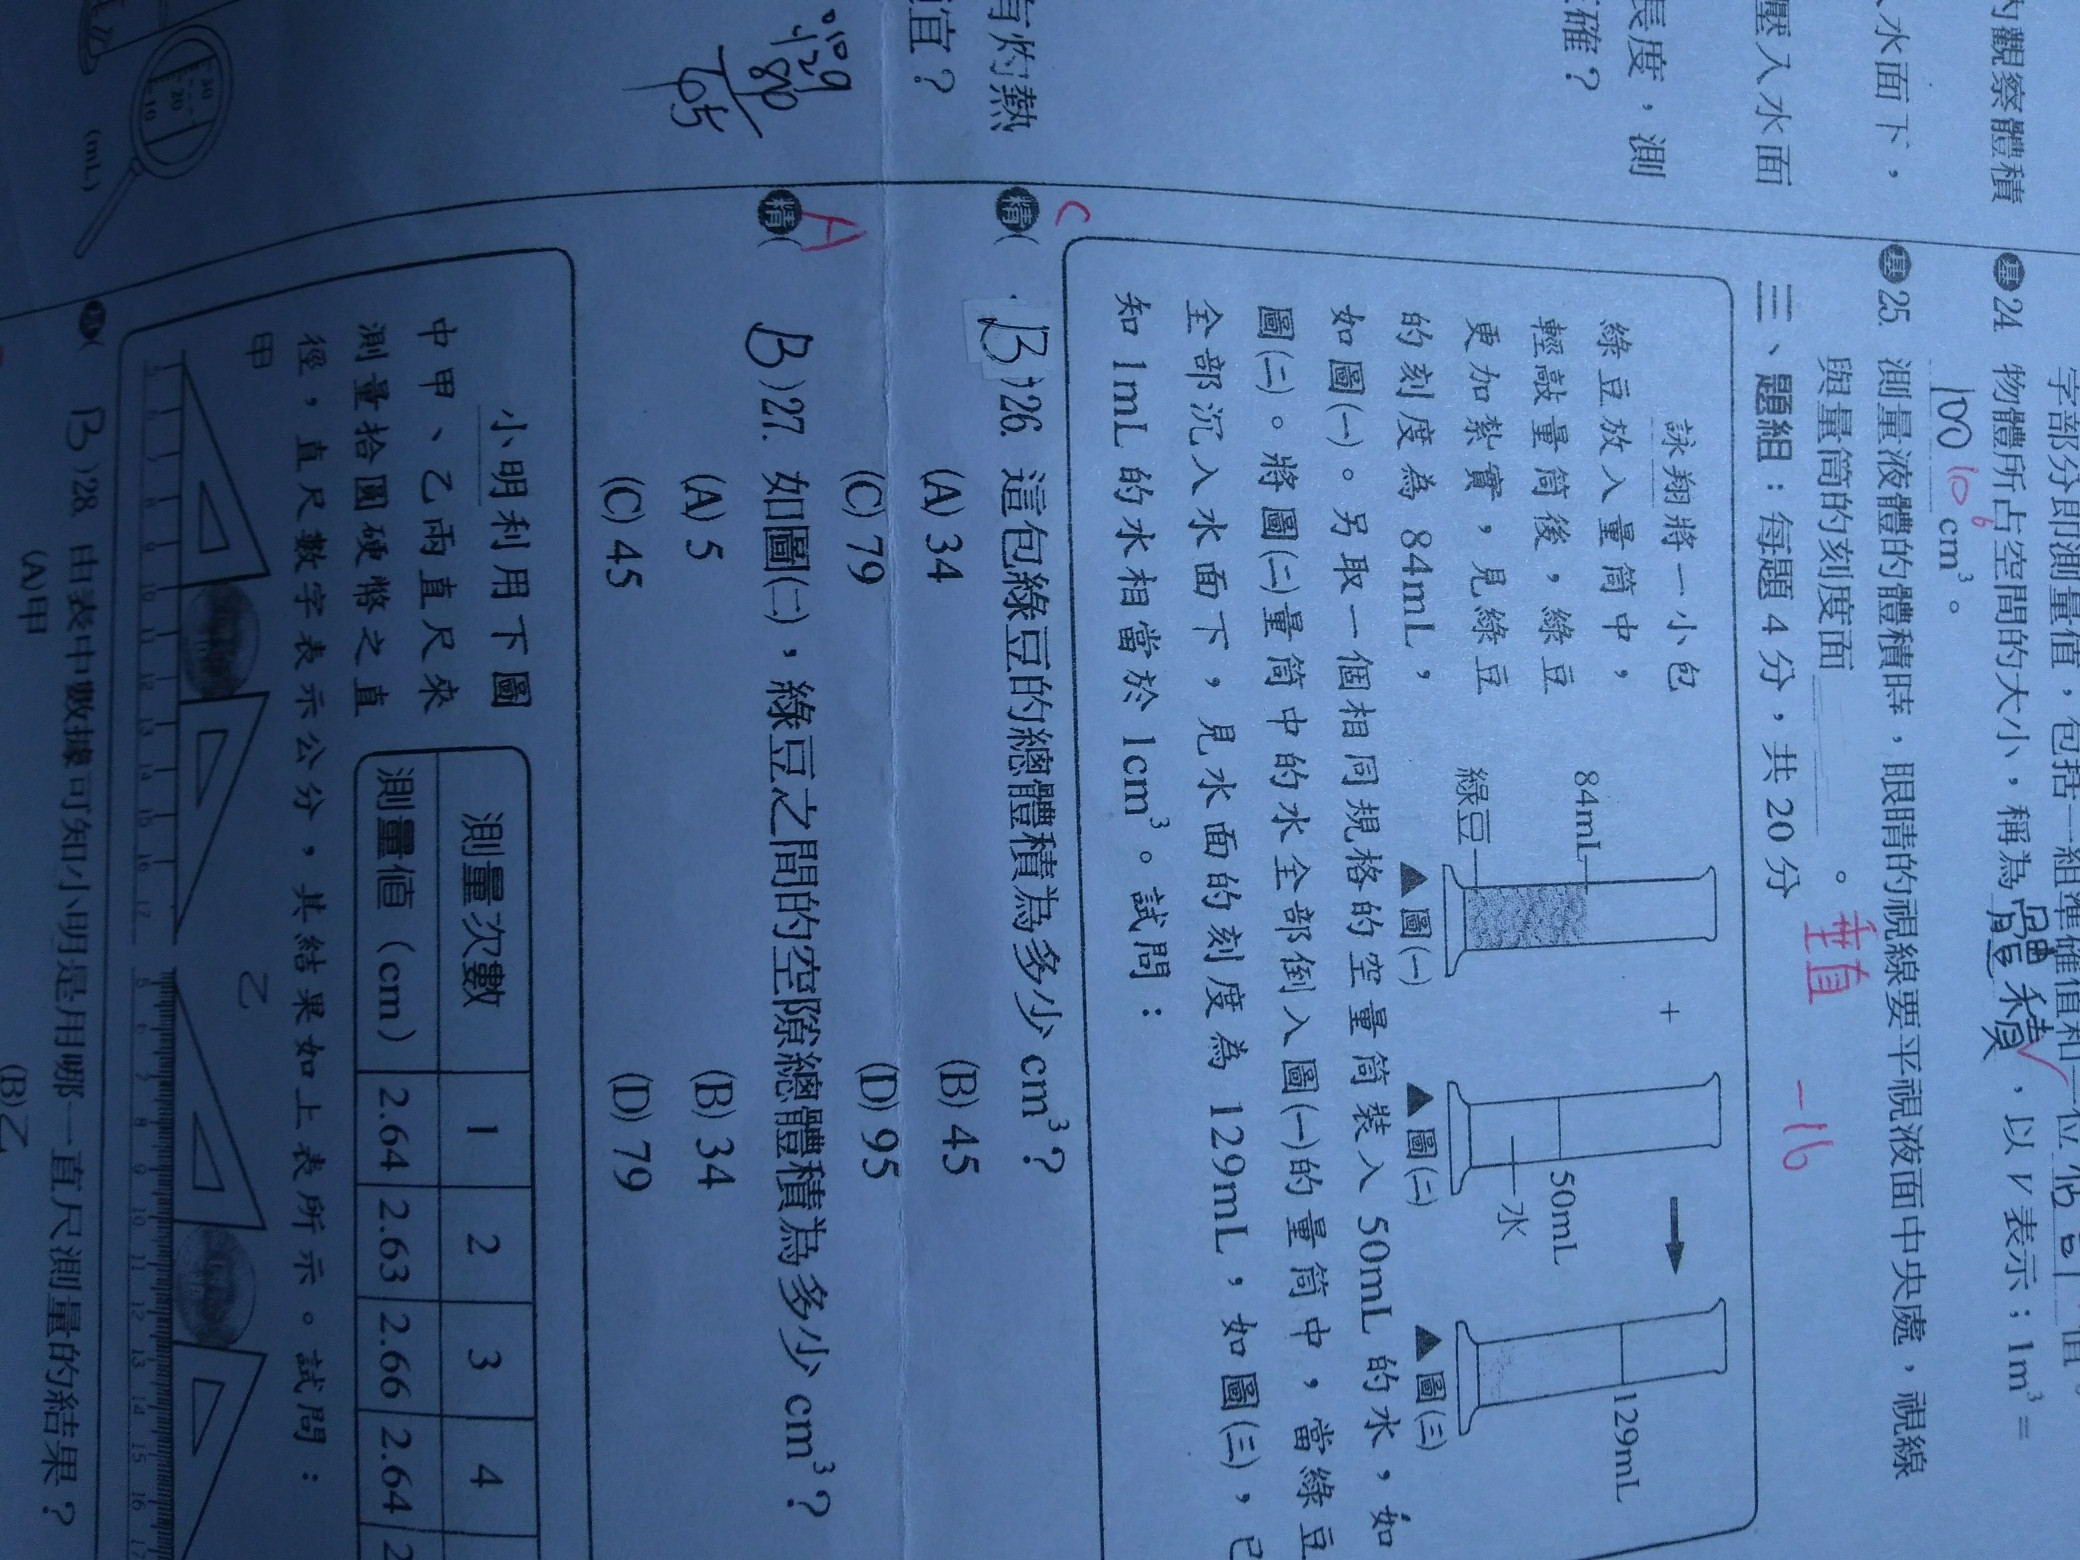 內觀察體積
水面下，
壓入水面
長度，測
確？
有灼熱
宜？
129
80
30
20
10
(mL)
字部分即測量值，包括一組準確值和一位
基 24. 物體所占空間的大小，稱為體積，以 V 表示；1m³ =
100 10⁶ cm³。
基 25. 測量液體的體積時，眼睛的視線要平視液面中央處，視線
與量筒的刻度面。
垂直
-16
三、題組：每題 4 分，共 20 分
詠翔將一小包
綠豆放入量筒中，
輕敲量筒後，綠豆
更加紮實，見綠豆
的刻度為 84mL，
如圖(一)。另取一個相同規格的空量筒裝入 50mL 的水，如
圖(二)。將圖(二)量筒中的水全部倒入圖(一)的量筒中，當綠豆
全部沉入水面下，見水面的刻度為 129mL，如圖(三)，已
知 1mL 的水相當於 1cm³。試問：
84mL
綠豆
▲圖(一)
+
50mL
水
▲圖(二)
129mL
▲圖(三)
C
精( B )26. 這包綠豆的總體積為多少 cm³？
(A) 34
(B) 45
(C) 79
(D) 95
A
精( B )27. 如圖(二)，綠豆之間的空隙總體積為多少 cm³？
(A) 5
(B) 34
(C) 45
(D) 79
小明利用下圖
中甲、乙兩直尺來
測量拾圓硬幣之直
徑，直尺數字表示公分，其結果如上表所示。試問：
測量次數 1 2 3 4
測量值（cm） 2.64 2.63 2.66 2.64 2
甲
5 6 7 8 9 10 11 12 13 14 15 16 17
乙
5 6 7 8 9 10 11 12 13 14 15 16 17
( B )28. 由表中數據可知小明是用哪一直尺測量的結果？
(A)甲
(B)乙